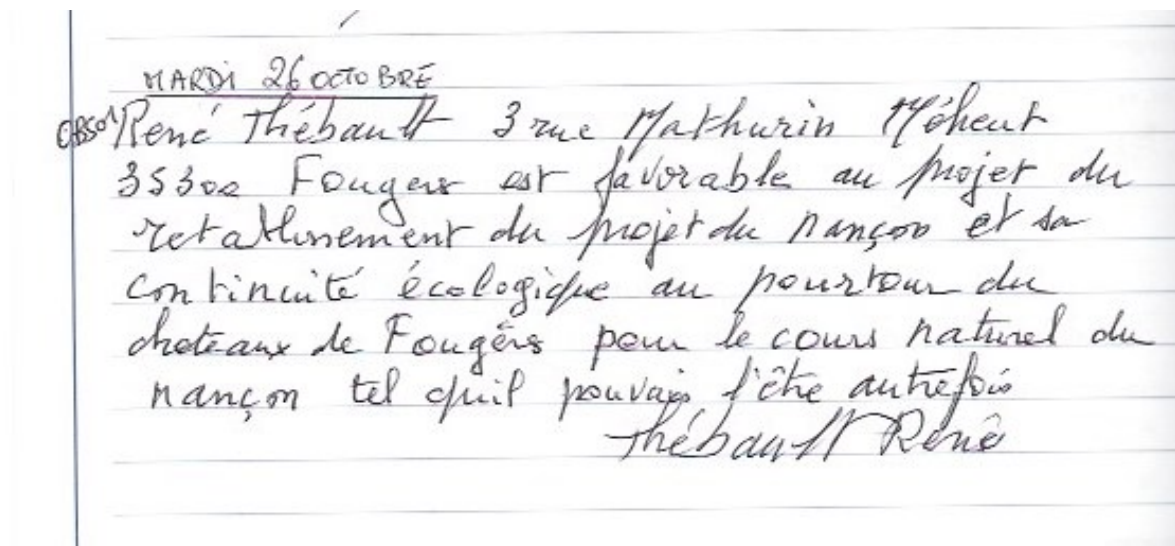 MARDI 26 OCTOBRE
OBS01 René Thébault 3 rue Mathurin Méheut
35300 Fougers est favorable au projet du
retablissement du projet du nançon et sa
continuité écologique au pourtour du
chateaux de Fougèrs pour le cours naturel du
nançon tel quil pouvais l'être autrefois
Thébault René